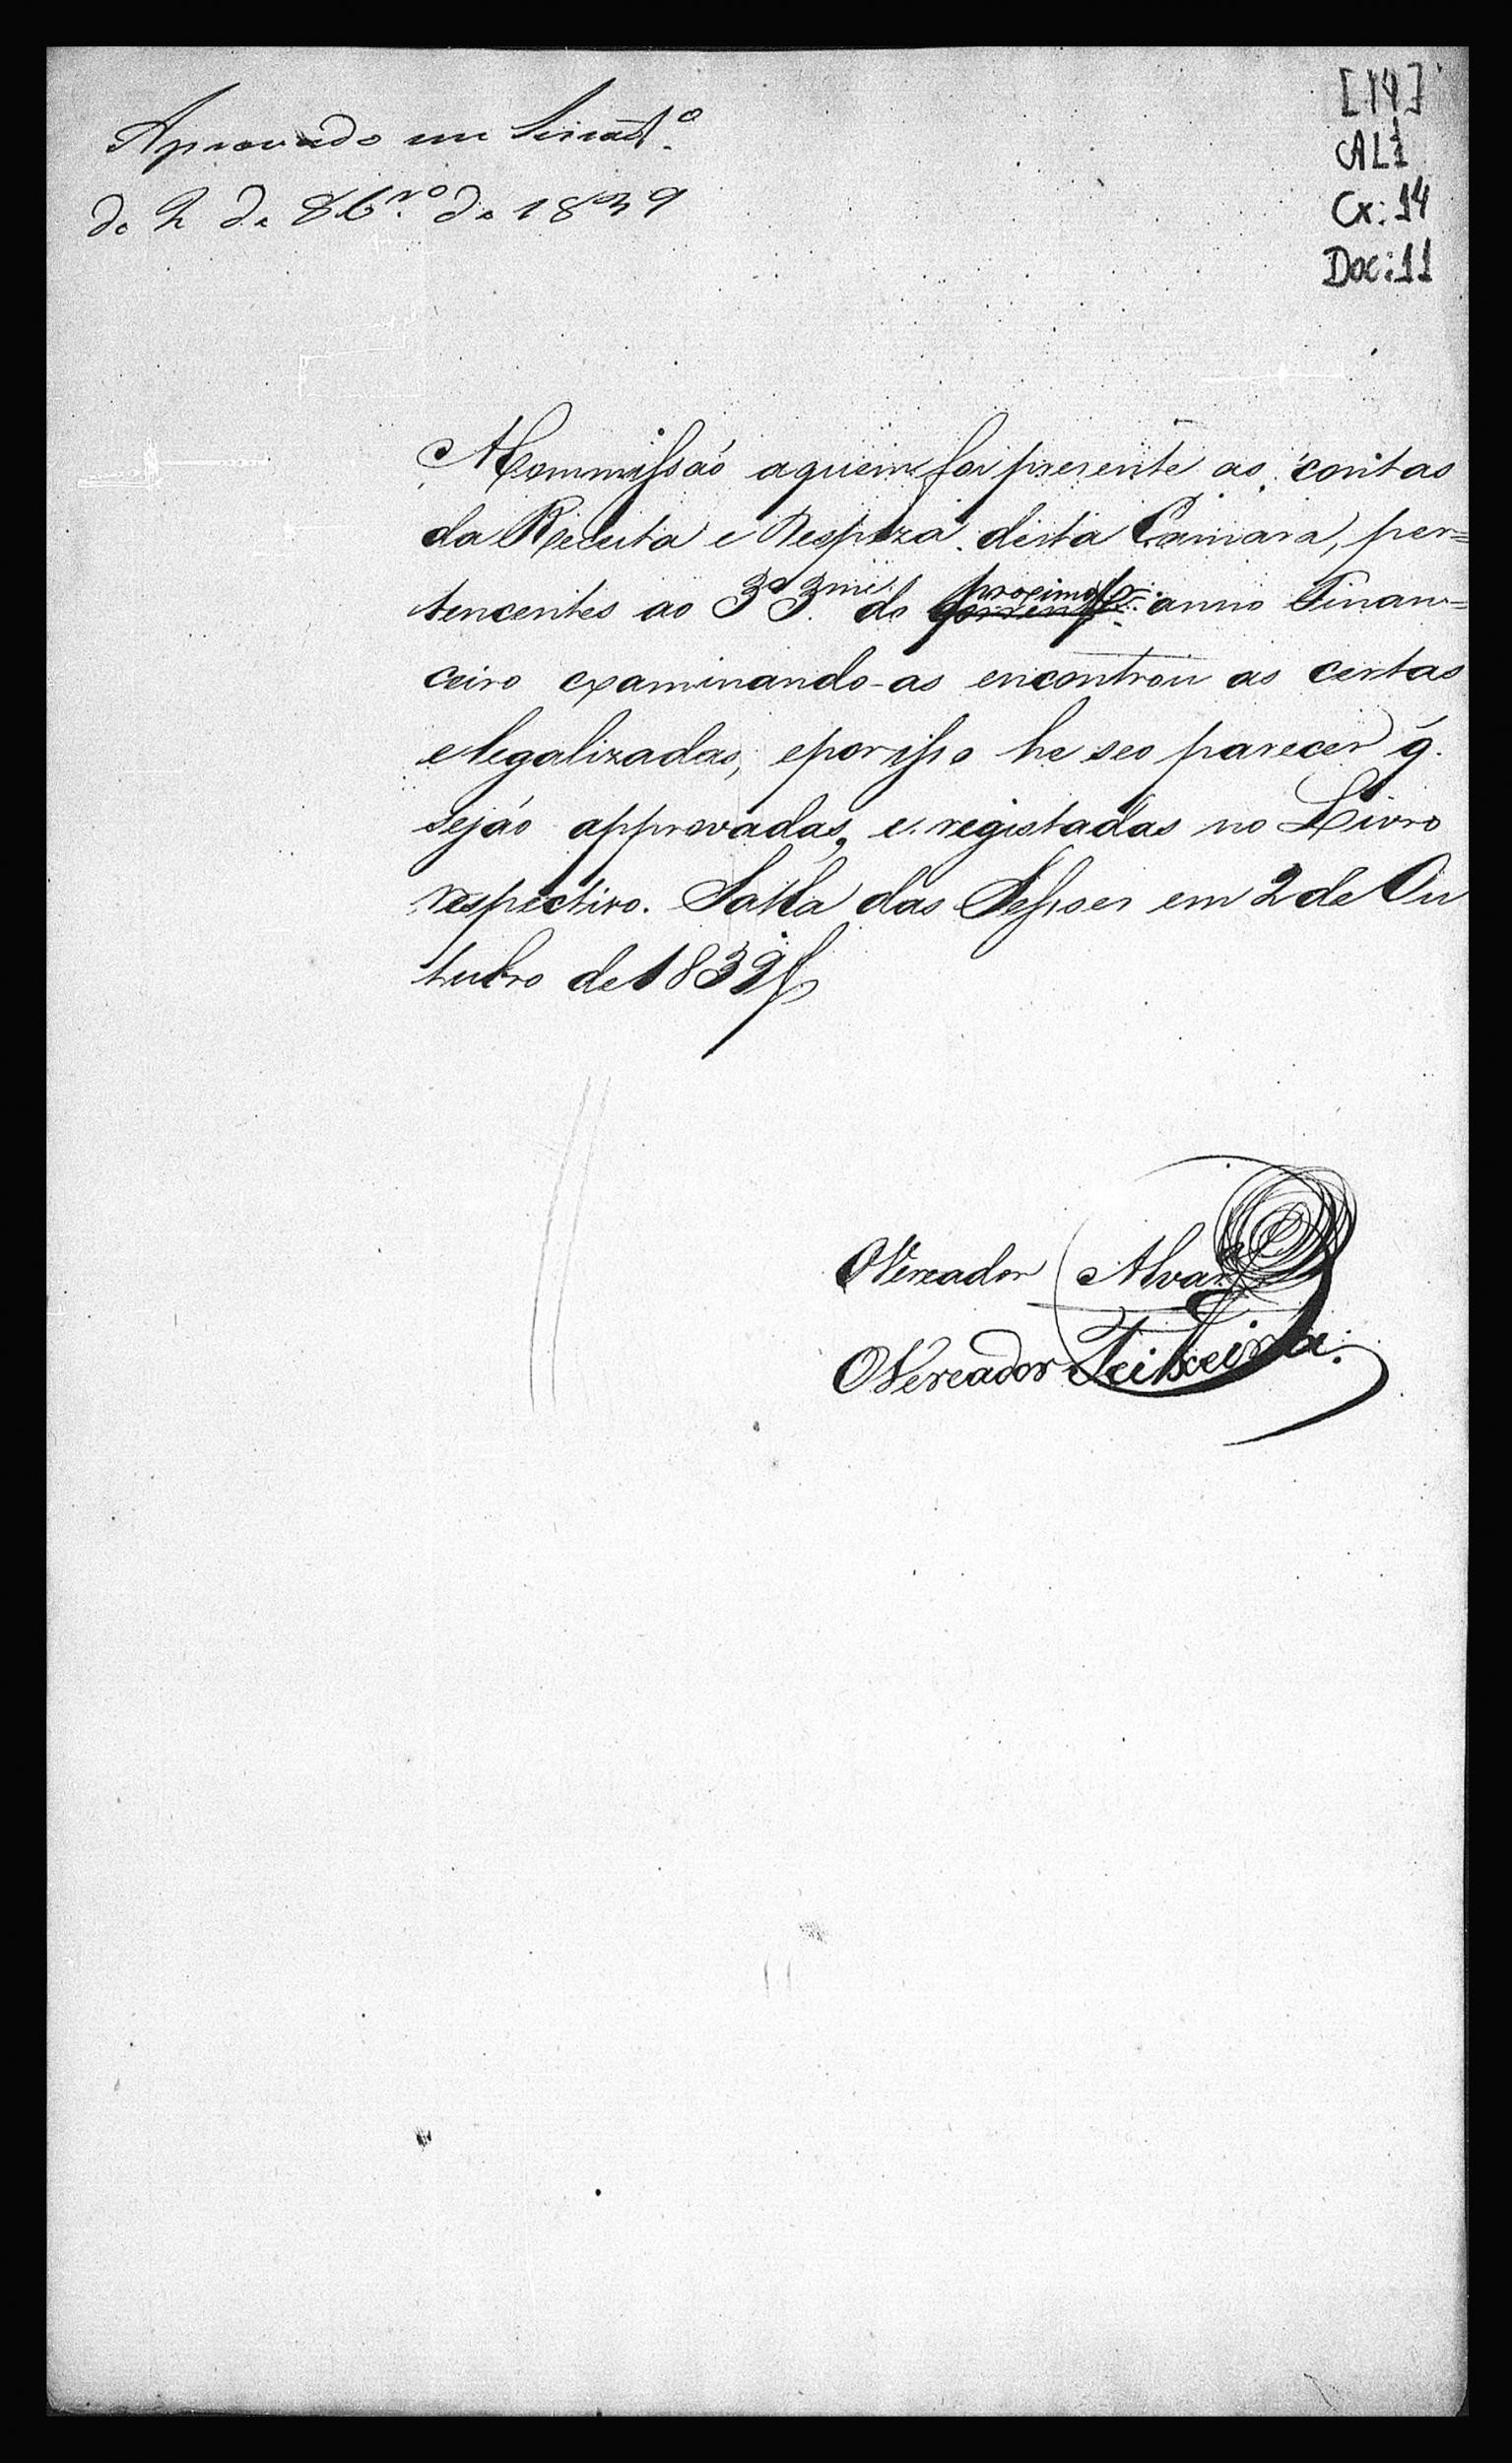 Aprovado em
de 2 de 8br.o de 1839
[14]
AL1
Cx: 14
Doc: 11
A Commissaõ aquem foi presente as contas
da Receita e Despeza desta Camara, per=
tencentes ao 3º 3me. do proximo anno Finan=
ceiro examinando-as encontrou as certas
e legalizadas, eporisso he seo parecer q.
sejaõ approvadas, e registadas no Livro
respectivo. Salla das Sessoes em 2 de Ou
tubro de 1839
OVereador Alvar
OVereador Teixeira.